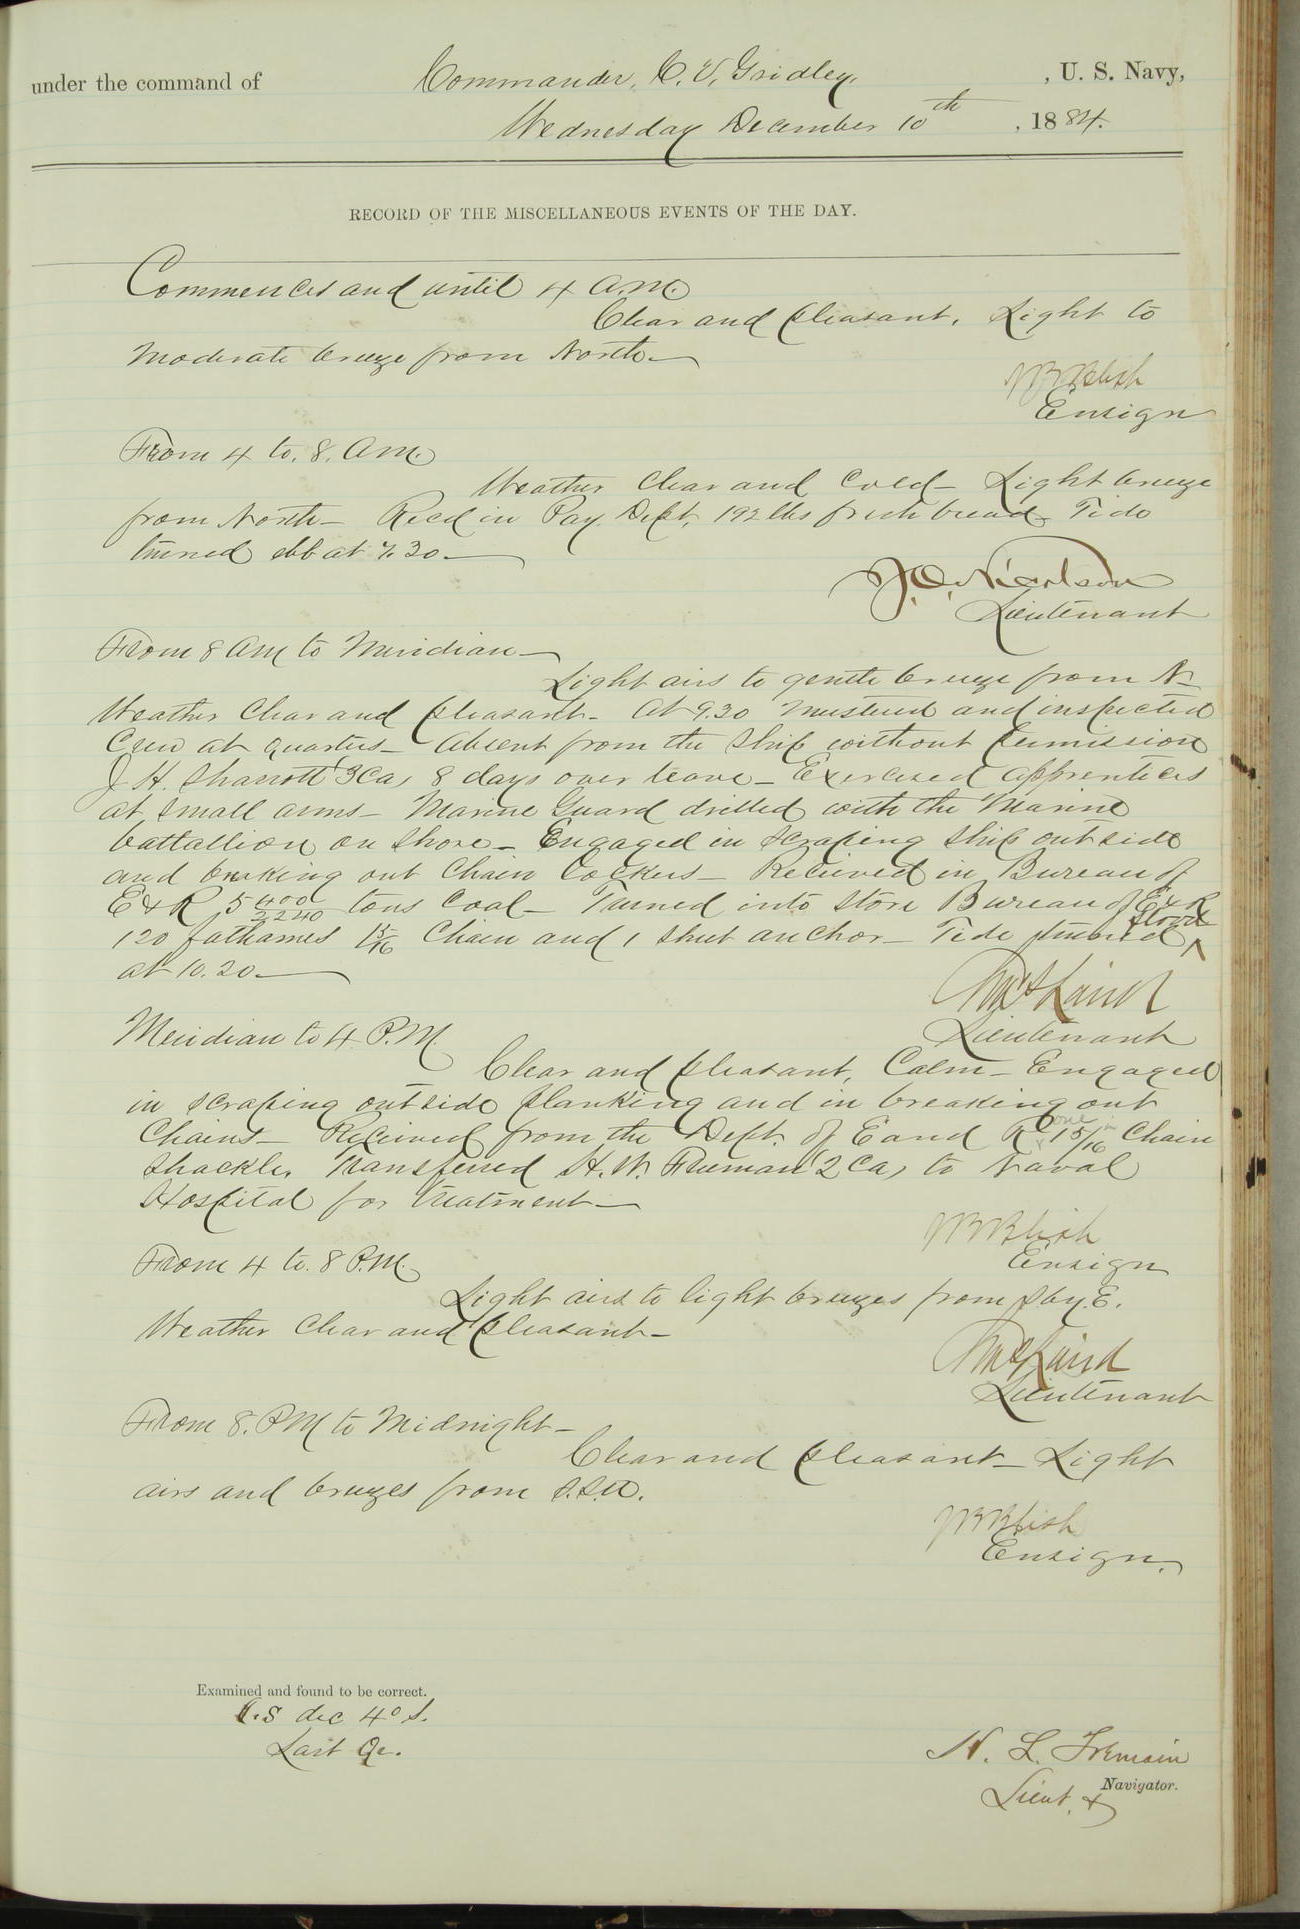 under the command of Commander, C. V. Gridley, , U. S. Navy,
Wednesday December 10th , 1884.
RECORD OF THE MISCELLANEOUS EVENTS OF THE DAY.
Commences and until 4 A.M.
Clear and pleasant. Light to
moderate breeze from North—
Ensign
From 4 to. 8. AM.
Weather clear and cold— Light breeze
from North— Recd in Pay Dept, 192 lbs fresh bread. Tide
turned ebb at 7.30—
J. O. Nicholson
Lieutenant
From 8 AM to Meridian—
Light airs to gentle breeze from N—
Weather clear and pleasant— At 9.30 mustered and inspected
Crew at quarters— Absent from the ship without permission
J. H. Sharrott (3Ca) 8 days over leave— Exercised apprentices
at small arms— Marine Guard drilled with the Marine
battallion on shore— Engaged in scraping ship outside
and breaking out chain lockers— Recieved in Bureau of
E & R 5 400/2240 tons Coal— Turned into store Bureau of E & R
120 fathames 1 5/16 Chain and 1 sheet anchor— Tide turned flood
at 10.20—
Lieutenant
Meridian to 4 P.M.
Clear and pleasant, Calm— Engaged
in scraping outside planking and in breaking out
Chains— Received from the Dept. of E and R one 1 5/16 in Chain
Shackle. Transferred H. W. Freeman (2 Ca) to Naval
Hospital for treatment—
Ensign
From 4 to. 8 P.M.
Light airs to light breezes from S by. E.
Weather clear and pleasant—
Lieutenant
From 8. PM to Midnight—
Clear and pleasant— Light
airs and breezes from S.S.W.
Ensign.
Examined and found to be correct.
dec 40 S.
Last Qr.
H. L. Tremain
Lieut, & Navigator.